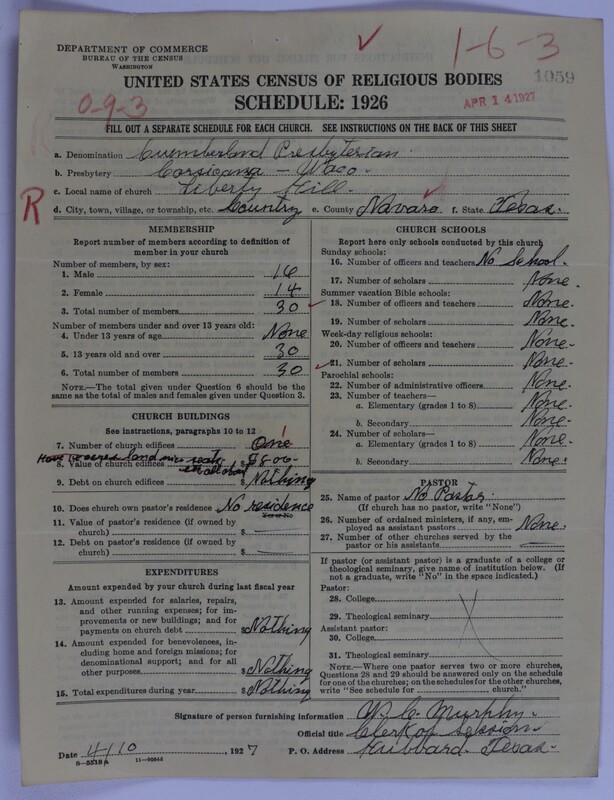 DEPARTMENT OF COMMERCE
BUREAU OF THE CENSUS
WASHINGTON
1-6-3
1059
UNITED STATES CENSUS OF RELIGIOUS BODIES
SCHEDULE: 1926
0-9-3
APR 14 1927
FILL OUT A SEPARATE SCHEDULE FOR EACH CHURCH. SEE INSTRUCTIONS ON THE BACK OF THIS SHEET
a. Denomination Cumberland Presbyterian
b. Presbytery Corsicana - Waco.
c. Local name of church Liberty Hill.
R
d. City, town, village, or township, etc. Country e. County Navaro f. State Texas.
MEMBERSHIP
Report number of members according to definition of member in your church
Number of members, by sex:
1. Male 16
2. Female 14
3. Total number of members 30
Number of members under and over 13 years old:
4. Under 13 years of age None
5. 13 years old and over 30
6. Total number of members 30
NOTE.—The total given under Question 6 should be the same as the total of males and females given under Question 3.
CHURCH BUILDINGS
See instructions, paragraphs 10 to 12
7. Number of church edifices One 1
8. Value of church edifices $800-
9. Debt on church edifices $ Nothing
10. Does church own pastor's residence No residence
Yes or No
11. Value of pastor's residence (if owned by church) $
12. Debt on pastor's residence (if owned by church) $
EXPENDITURES
Amount expended by your church during last fiscal year
13. Amount expended for salaries, repairs, and other running expenses; for improvements or new buildings; and for payments on church debt $ Nothing
14. Amount expended for benevolences, including home and foreign missions; for denominational support; and for all other purposes $ Nothing
15. Total expenditures during year $ Nothing
CHURCH SCHOOLS
Report here only schools conducted by this church
Sunday schools:
16. Number of officers and teachers No School.
17. Number of scholars None
Summer vacation Bible schools:
18. Number of officers and teachers None.
19. Number of scholars None.
Week-day religious schools:
20. Number of officers and teachers None.
21. Number of scholars None.
Parochial schools:
22. Number of administrative officers None.
23. Number of teachers—
a. Elementary (grades 1 to 8) None.
b. Secondary None.
24. Number of scholars—
a. Elementary (grades 1 to 8) None.
b. Secondary None.
PASTOR
25. Name of pastor No Pastor.
(If church has no pastor, write "None")
26. Number of ordained ministers, if any, employed as assistant pastors None.
27. Number of other churches served by the pastor or his assistants
If pastor (or assistant pastor) is a graduate of a college or theological seminary, give name of institution below. (If not a graduate, write "No" in the space indicated.)
Pastor:
28. College
29. Theological seminary
Assistant pastor:
30. College
31. Theological seminary
NOTE.—Where one pastor serves two or more churches, Questions 28 and 29 should be answered only on the schedule for one of the churches; on the schedules for the other churches, write "See schedule for church."
Signature of person furnishing information W. C. Murphy.
Official title Clerk of Session.
Date 4/10 1927 P. O. Address Hubbard. Texas.
8-5518a 11-90642